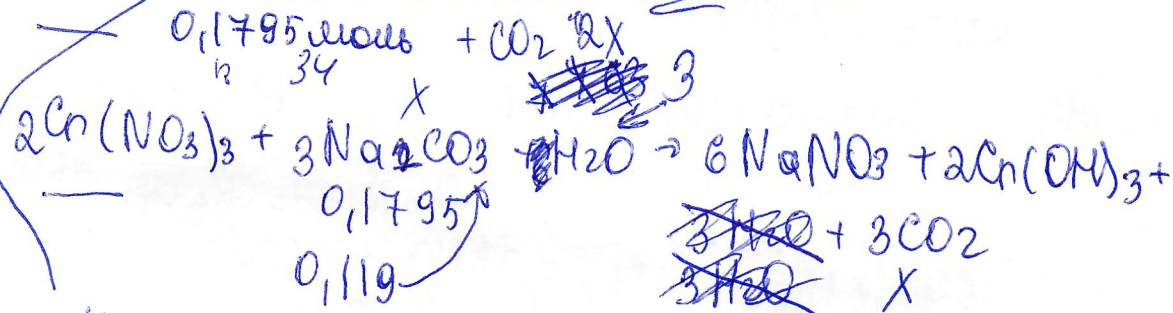 0,1795 моль + CO2 2X
34
X 3
2Cr(NO3)3 + 3Na2CO3 + H2O → 6NaNO3 + 2Cr(OH)3 +
0,1795 3H2O + 3CO2
0,119 3H2O X